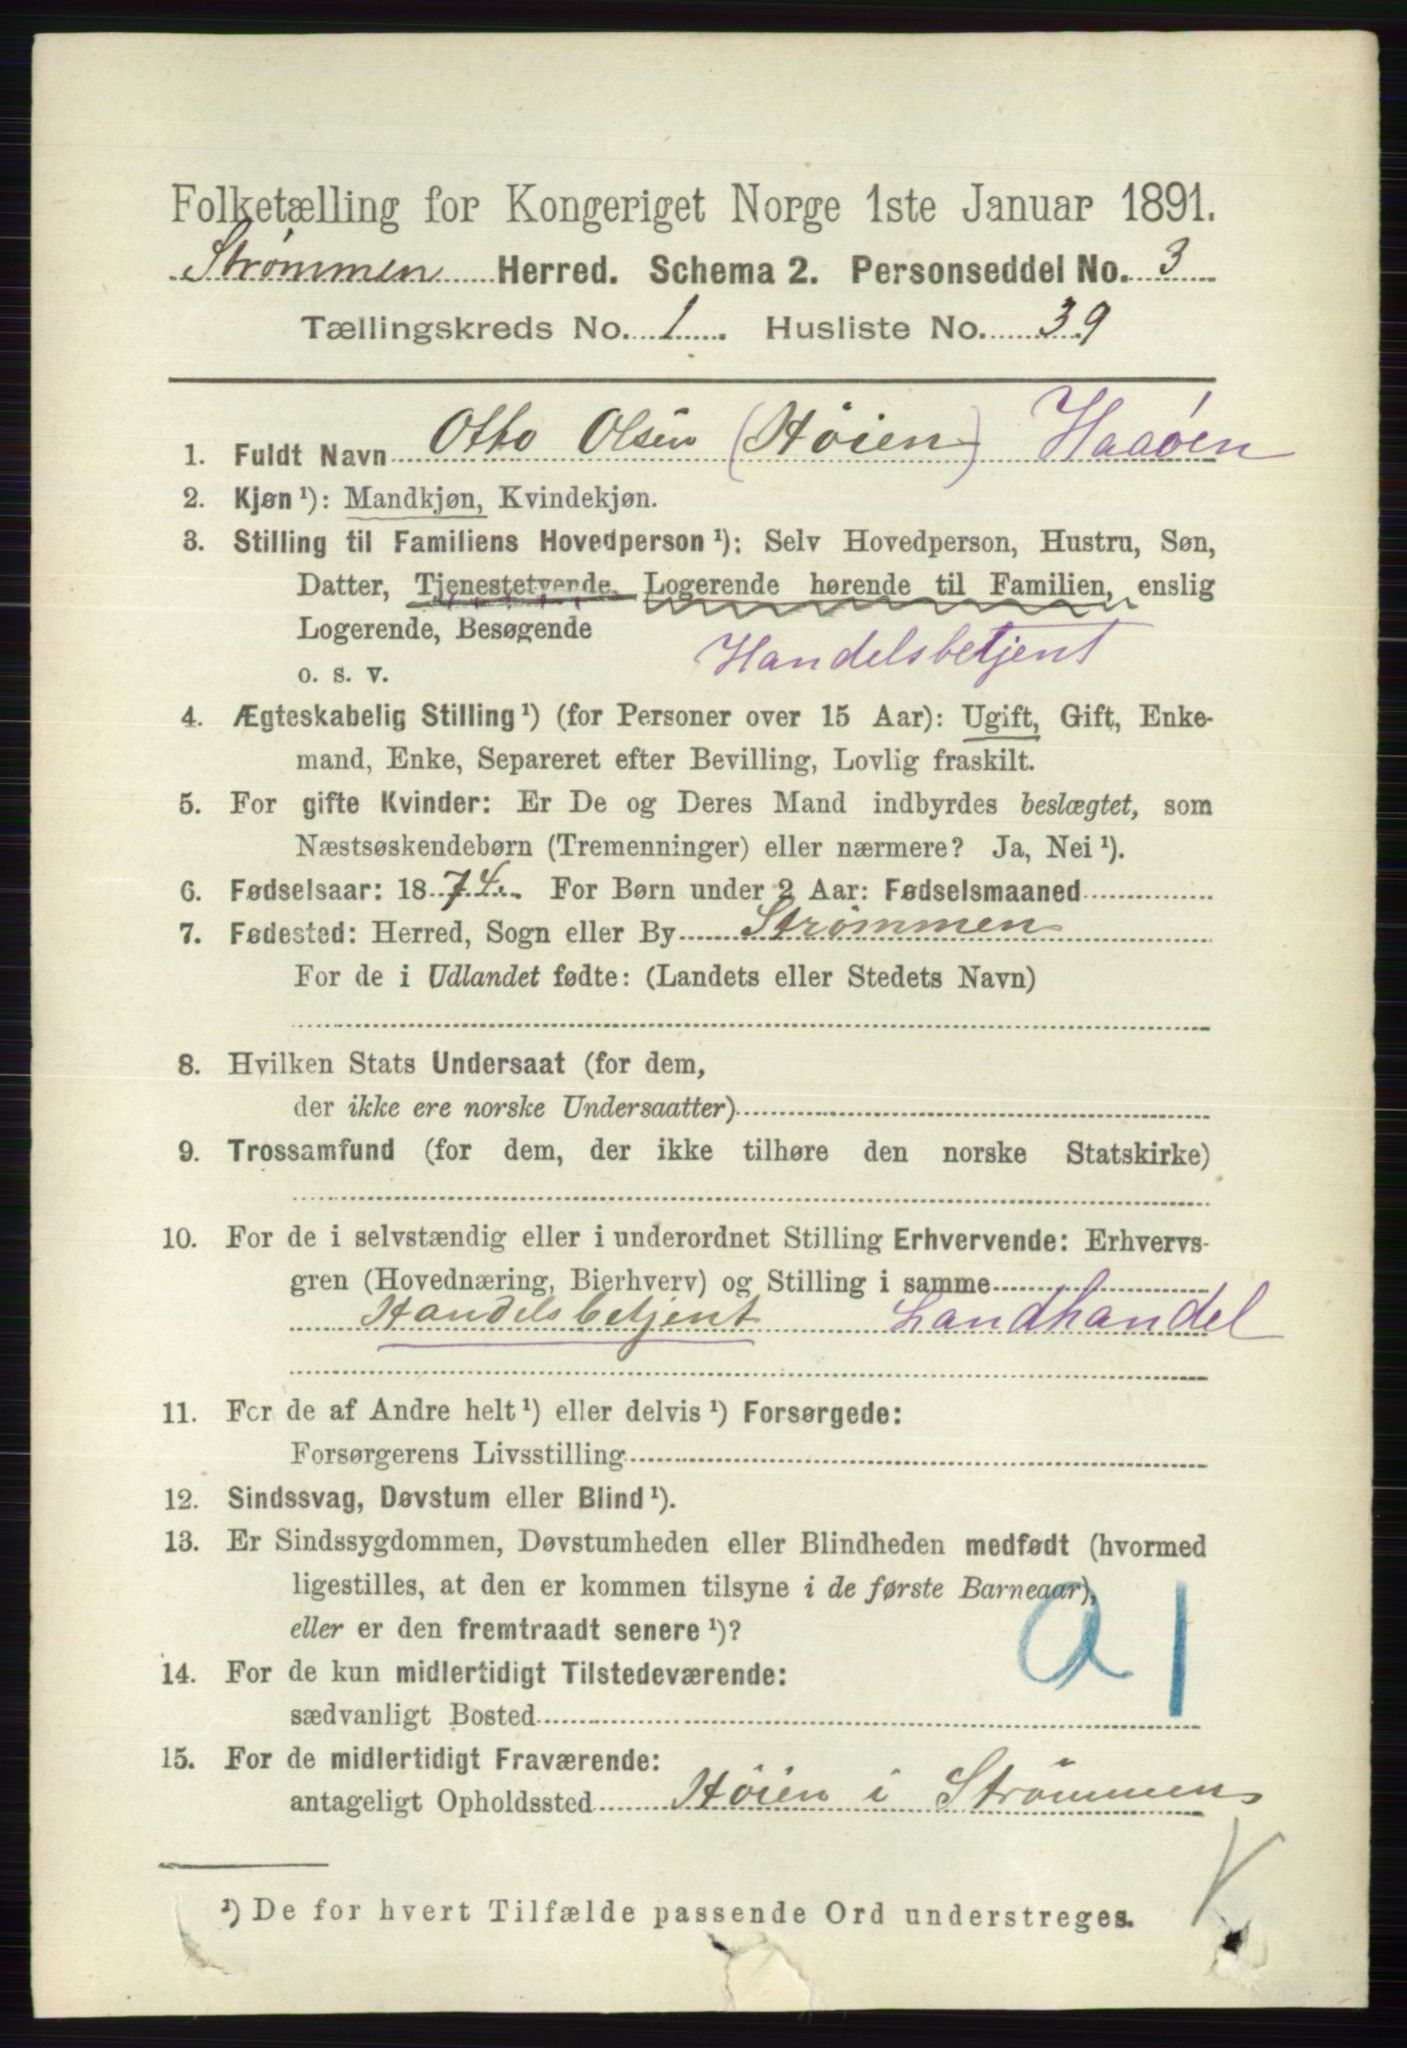 Folketælling for Kongeriget Norge 1ste Januar 1891.
Strømmen Herred. Schema 2. Personseddel No. 3
Tællingskreds No. 1. Husliste No. 39
1. Fuldt Navn Otto Olsen (Høien) Haaøen
2. Kjøn¹): Mandkjøn, Kvindekjøn.
3. Stilling til Familiens Hovedperson¹): Selv Hovedperson, Hustru, Søn,
Datter, Tjenestetyende, Logerende hørende til Familien, enslig
Logerende, Besøgende
Handelsbetjent
o. s. v.
4. Ægteskabelig Stilling¹) (for Personer over 15 Aar): Ugift, Gift, Enke-
mand, Enke, Separeret efter Bevilling, Lovlig fraskilt.
5. For gifte Kvinder: Er De og Deres Mand indbyrdes beslægtet, som
Næstsøskendebørn (Tremenninger) eller nærmere? Ja, Nei¹).
6. Fødselsaar: 1874. For Børn under 2 Aar: Fødselsmaaned
7. Fødested: Herred, Sogn eller By Strømmen
For de i Udlandet fødte: (Landets eller Stedets Navn)
8. Hvilken Stats Undersaat (for dem,
der ikke ere norske Undersaatter)
9. Trossamfund (for dem, der ikke tilhøre den norske Statskirke)
10. For de i selvstændig eller i underordnet Stilling Erhvervende: Erhvervs-
gren (Hovednæring, Bierhverv) og Stilling i samme
Handelsbetjent Landhandel
11. For de af Andre helt¹) eller delvis¹) Forsørgede:
Forsørgerens Livsstilling
12. Sindssvag, Døvstum eller Blind¹).
13. Er Sindssygdommen, Døvstumheden eller Blindheden medfødt (hvormed
ligestilles, at den er kommen tilsyne i de første Barneaar),
eller er den fremtraadt senere¹)?
14. For de kun midlertidigt Tilstedeværende:
sædvanligt Bosted
15. For de midlertidigt Fraværende:
antageligt Opholdssted Høien i Strømmen
¹) De for hvert Tilfælde passende Ord understreges.